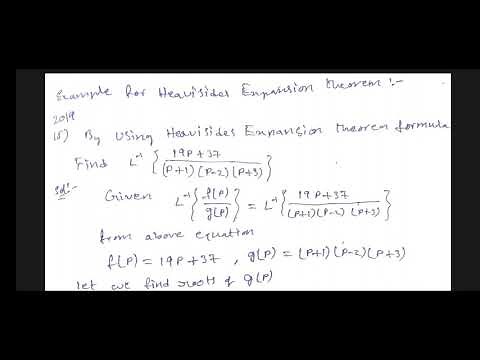 Example for Heavisides Expansion theorem :-
2019
15) By Using Heavisides Expansion theorem formula
Find L⁻¹ { 19P+37 / (P+1)(P-2)(P+3) }
Sol:-
Given L⁻¹ { f(P) / g(P) } = L⁻¹ { 19P+37 / (P+1)(P-2)(P+3) }
from above equation
f(P) = 19P+37 , g(P) = (P+1)(P-2)(P+3)
let we find roots of g(P)